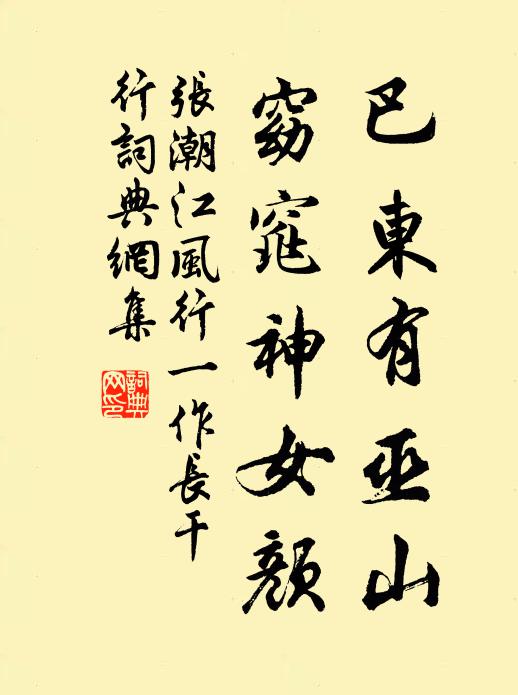 巴東有巫山
窈窕神女顔
張潮江風行一作長干
行詞典網集
詞典
网印